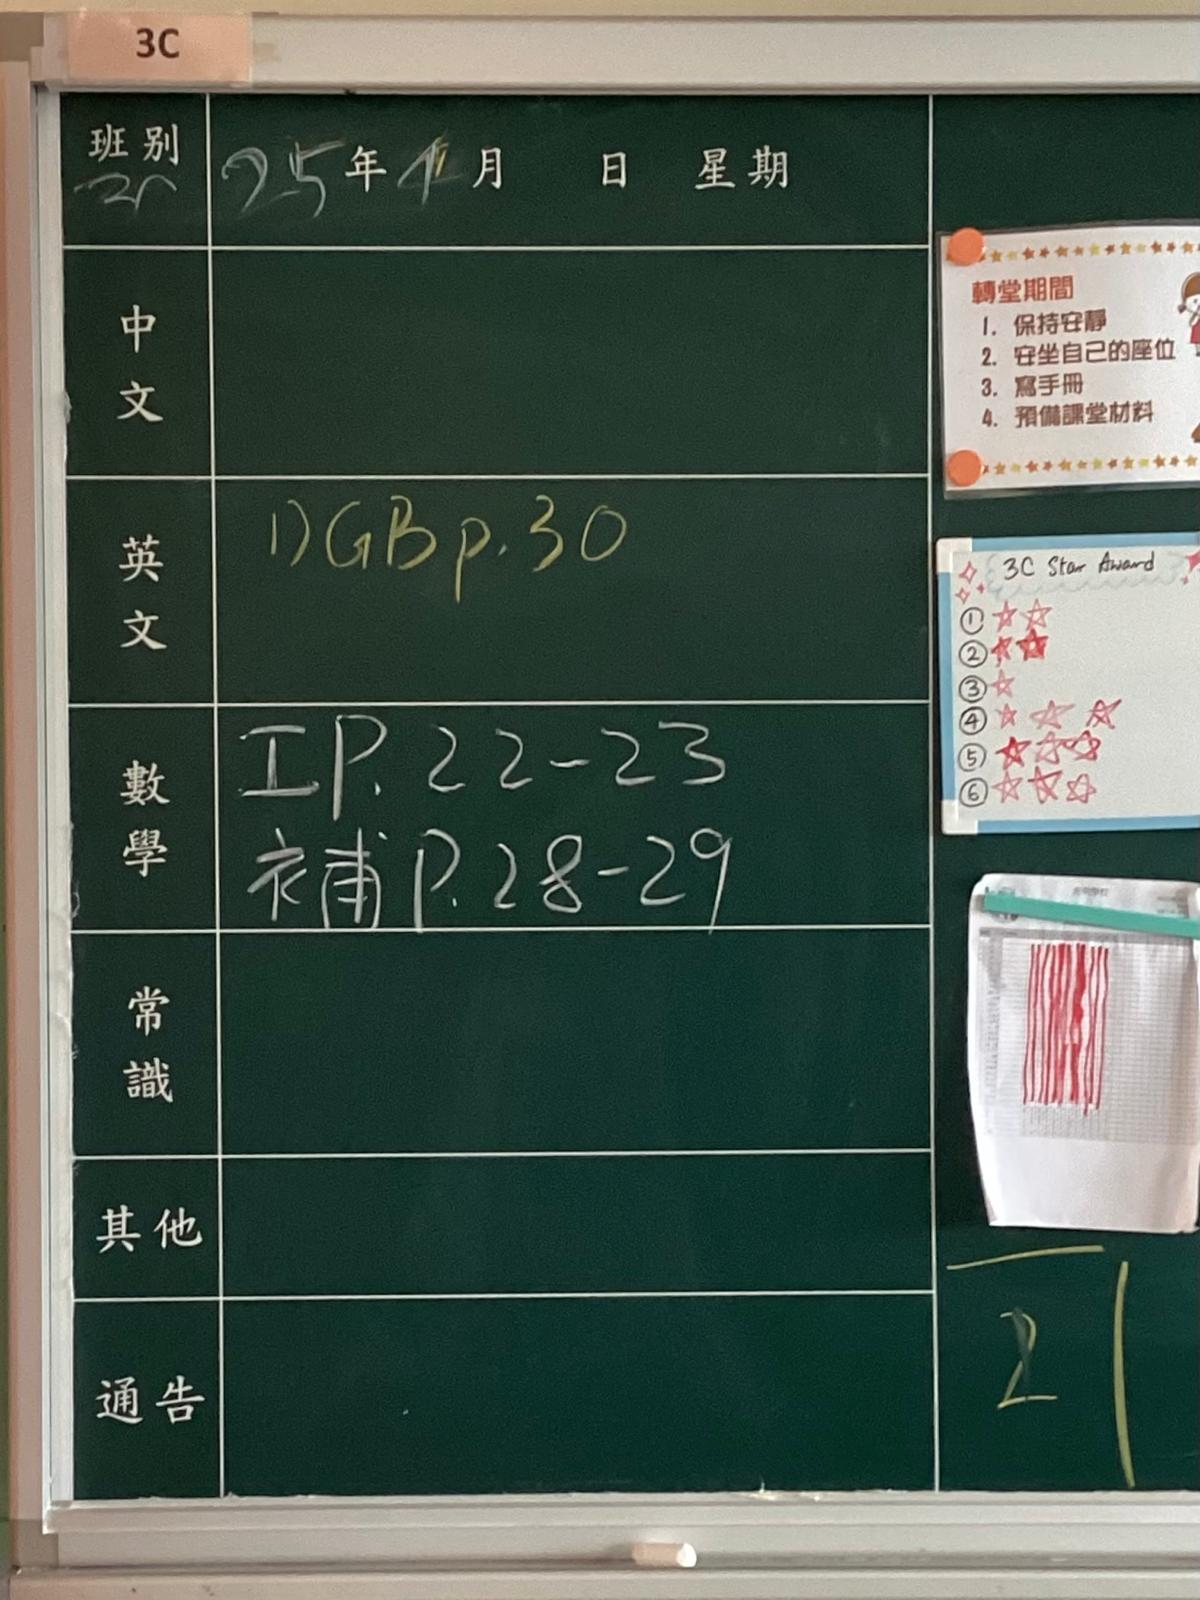 3C
班別
25年 月 日 星期
中文
英文
1) GB p.30
數學
工P.22-23
補P.28-29
常識
其他
通告
轉堂期間
1. 保持安靜
2. 安坐自己的座位
3. 寫手冊
4. 預備課堂材料
3C Star Award
①
②
③
④
⑤
⑥
2